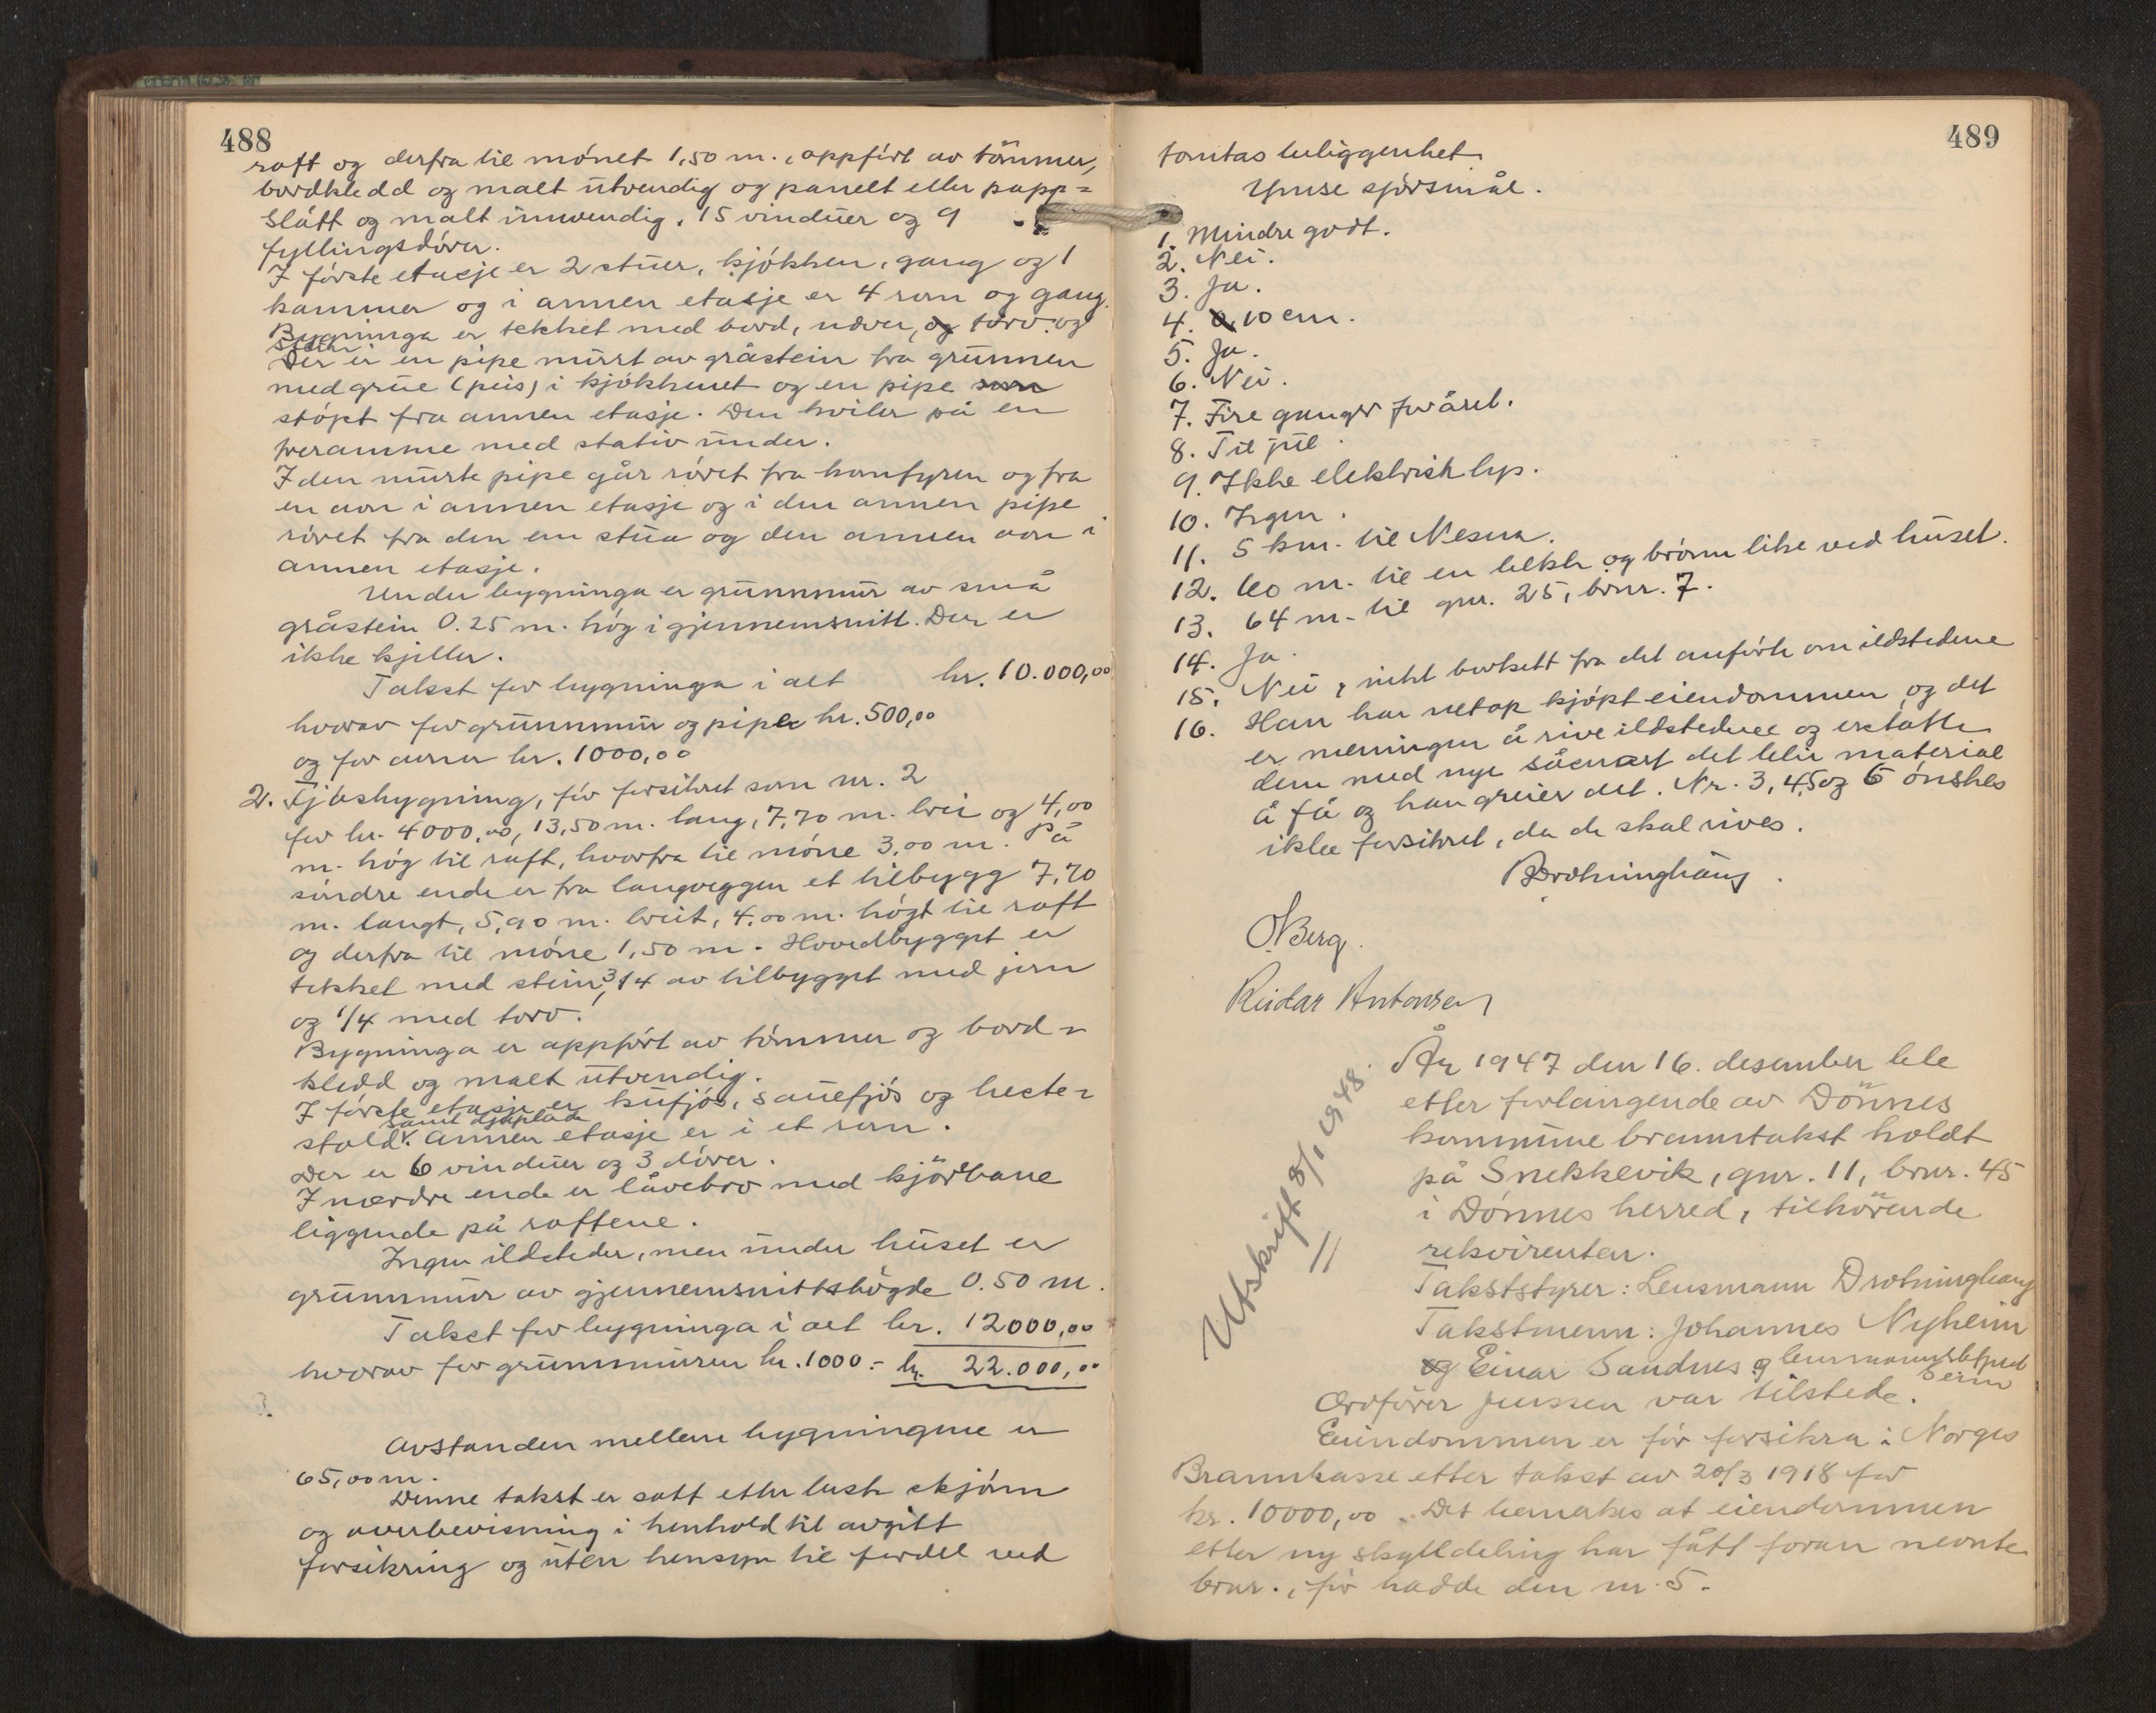 488
raft og derfra til mønet 1,50 m., oppført av tømmer,
bordkledd og malt utvendig og panelt eller papp=
slått og malt innvendig. 15 vinduer og 9
fyllingsdører.
I første etasje er 2 stuer, kjøkken, gang og 1
kammer og i annen etasje er 4 rom og gang.
Bygninga er tekket med bord, never, og torv. og
stein
Der er en pipe murt av gråstein fra grunnen
med grue (peis) i kjøkkenet og en pipe som
støpt fra annen etasje. Den hviler på en
treramme med stativ under.
I den murte pipe går røret fra komfyren og fra
en ovn i annen etasje og i den annen pipe
røret fra den ene stua og den annen ovn i
annen etasje.
Under bygninga er grunnmur av små
gråstein 0.25 m. høg i gjennemsnitt. Der er
ikke kjeller.
Takst for bygninga i alt kr. 10.000,00
hvorav for grunnmur og piper kr. 500,00
og for ovner kr. 1000,00
2. Fjøsbygning, før forsikret som nr. 2
for kr. 4000,00, 13,50 m. lang, 7,70 m. brei og 4,00
m. høg til raft, hvorfra til møne 3,00 m. På
søndre ende er fra langveggen et tilbygg 7,70
m. langt, 5,90 m. breit, 4,00 m. høgt til raft
og derfra til møne 1,50 m. Hovedbygget er
tekket med stein, 3/4 av tilbygget med jern
og 1/4 med torv.
Bygninga er oppført av tømmer og bord=
kledd og malt utvendig.
I første etasje er kufjøs, sauefjøs og heste=
samt
stald. Annen etasje er i et rom.
Der er 6 vinduer og 3 dører.
I nordre ende er låvebro med kjørbane
liggende på raftene.
Ingen ildsteder, men under huset er
grunnmur av gjennemsnittshøgde 0.50 m.
Takst for bygninga i alt kr. 12000,00
hvorav for grunnmuren kr. 1000.- kr. 22.000,00
Avstanden mellem bygningene er
65,00 m.
Denne takst er satt etter beste skjønn
og overbevisning i henhold til avgitt
forsikring og uten hensyn til fordel ved
489
tomtas beliggenhet.
Ymse spørsmål.
1. Mindre godt.
2. Nei.
3. Ja.
4. 0,10 cm.
5. Ja.
6. Nei.
7. Fire ganger for året.
8. Til jul.
9. Ikke elektrisk lys.
10. Ingen.
11. 5 km. til Nesna.
12. 60 m. til en bekk og brønn like ved huset.
13. 64 m. til gnr. 25, brnr. 7.
14. Ja.
15. Nei, intet bortsett fra det anførte om ildstedene
16. Han har netop kjøpt eiendommen, og det
er meningen å rive ildstedene og erstatte
dem med nye såsnart det blir material
å få og han greier det. Nr. 3, 4, 5 og 6 ønskes
ikke forsikret, da de skal rives.
Drotninghaug.
O. Berg.
Reidar Antonsen
Utskrift 8/1 1948.
År 1947 den 16. desember ble
etter forlangende av Dønnes
kommune branntakst holdt
på Snekkevik, gnr. 11, brnr. 45
i Dønnes herred, tilhørende
rekvirenten.
Takststyrer: Lensmann Drotninghaug
Takstmenn: Johannes Nyheim
og Einar Sandnes og
Ordfører Jenssen var tilstede.
Eiendommen er før forsikra i Norges
Brannkasse etter takst av 20/3 1918 for
kr. 10000,00. Det bemerkes at eiendommen
etter ny skylddeling har fått foran nevnte
brnr., før hadde den nr. 5.